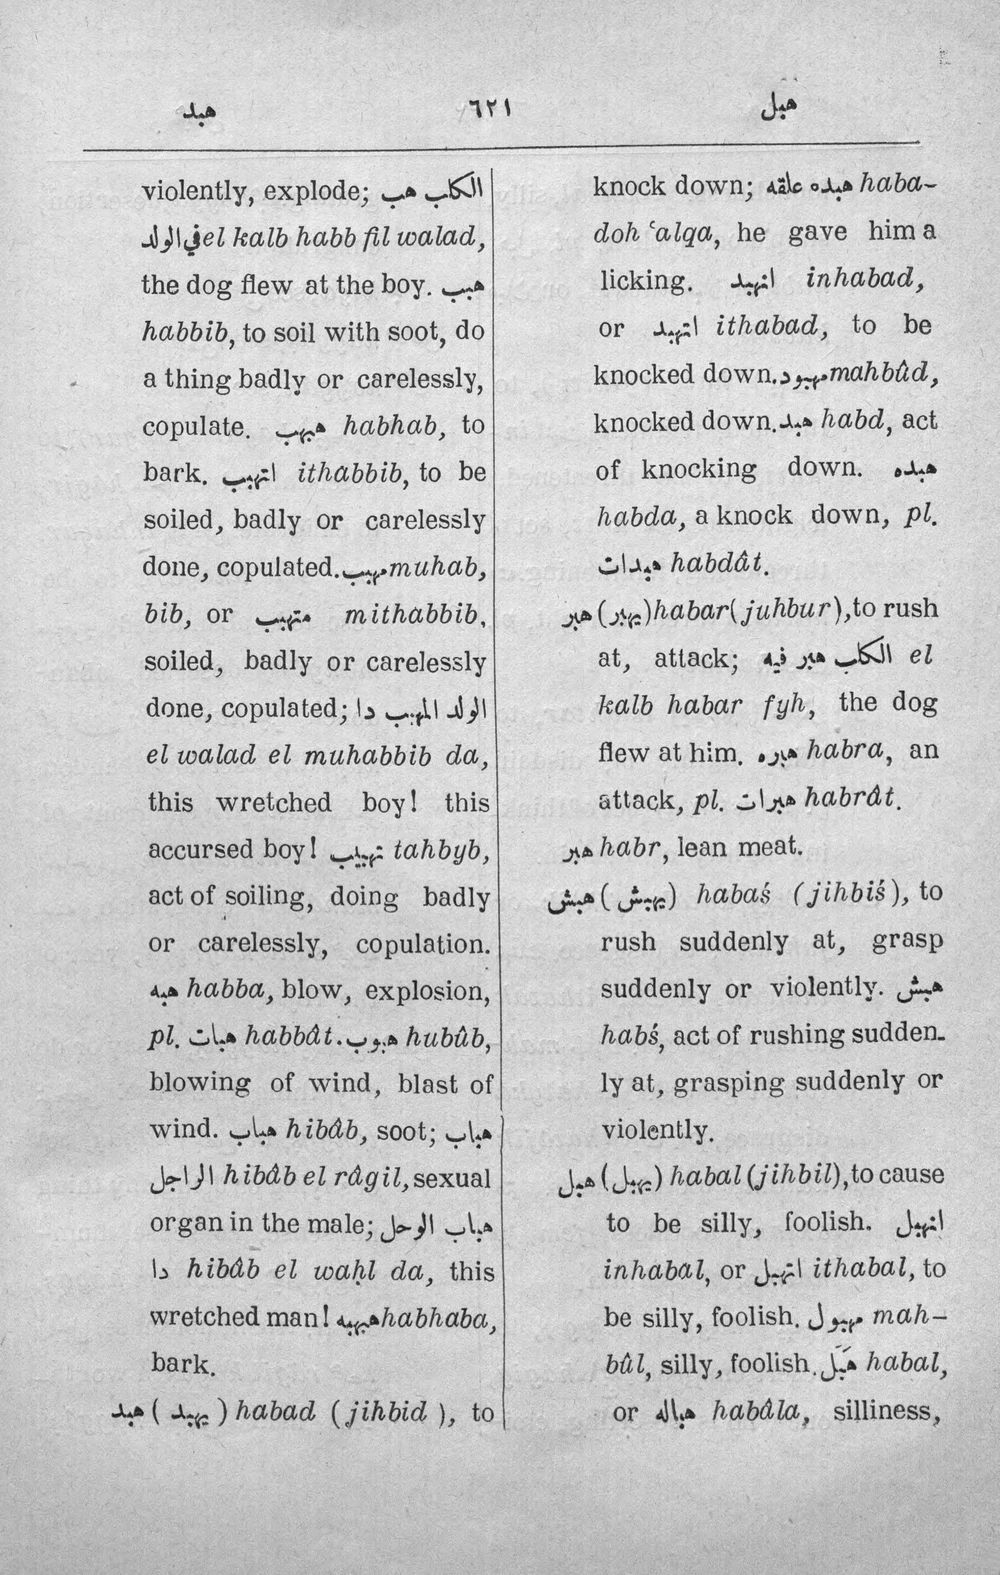 هبد ٦٢١ هبل
violently, explode; الكلب هب
في الولد el kalb habb fil walad,
the dog flew at the boy. هبب
habbib, to soil with soot, do
a thing badly or carelessly,
copulate. هبهب habhab, to
bark. اتهبب ithabbib, to be
soiled, badly or carelessly
done, copulated. مهبب muhab,
bib, or متهبب mithabbib,
soiled, badly or carelessly
done, copulated; الولد المهبب دا
el walad el muhabbib da,
this wretched boy! this
accursed boy! تهبيب tahbyb,
act of soiling, doing badly
or carelessly, copulation.
هبه habba, blow, explosion,
pl. هبات habbât. هبوب hubûb,
blowing of wind, blast of
wind. هباب hibâb, soot; هباب
الراجل hibâb el râgil, sexual
organ in the male; هباب الوحل
دا hibâb el waḥl da, this
wretched man! هبهبه habhaba,
bark.
هبد ( يهبد ) habad (jihbid ), to
knock down; هبده علقه haba-
doh ʿalqa, he gave him a
licking. انهبد inhabad,
or اتهبد ithabad, to be
knocked down. مهبود mahbûd,
knocked down. هبد habd, act
of knocking down. هبده
habda, a knock down, pl.
هبدات habdât.
هبر (يهبر) habar(juhbur), to rush
at, attack; الكلب هبر فيه el
kalb habar fyh, the dog
flew at him. هبره habra, an
attack, pl. هبرات habrât.
هبر habr, lean meat.
هبش ( يهبش) habaś (jihbiś), to
rush suddenly at, grasp
suddenly or violently. هبش
habś, act of rushing sudden-
ly at, grasping suddenly or
violently.
هبل (يهبل) habal (jihbil), to cause
to be silly, foolish. انهبل
inhabal, or اتهبل ithabal, to
be silly, foolish. مهبول mah-
bûl, silly, foolish. هَبَل habal,
or هباله habâla, silliness,